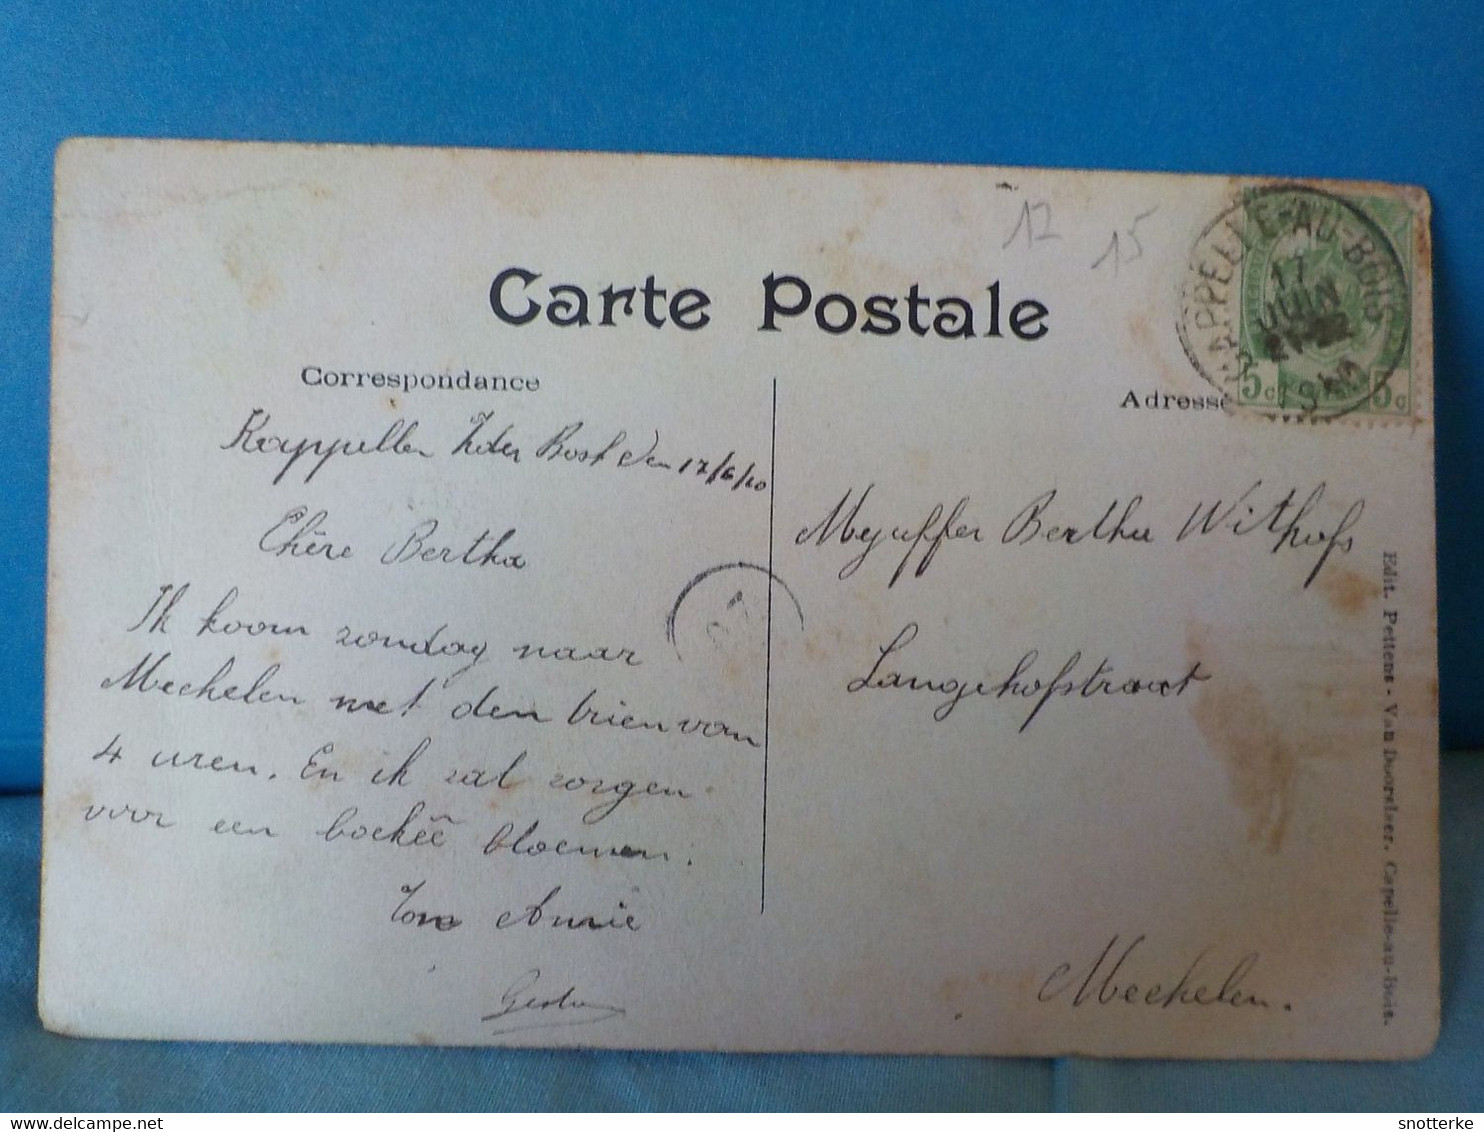 12
15
CAPPELLE-AU-BOIS
17
JUIN
5c 5c
Carte Postale
Correspondance
Adresse
Kappellen den 17/6/10
Chère Bertha
Ik koom zondag naar
Mechelen met den trien van
4 uren. En ik zal zorgen
voor een bockëë bloemen.
Annie
Mejuffer Bertha Withofs
Langehofstraat
Mechelen.
Edit. Pettens - Van Doorslaer. Capelle-au-Bois.
snotterke